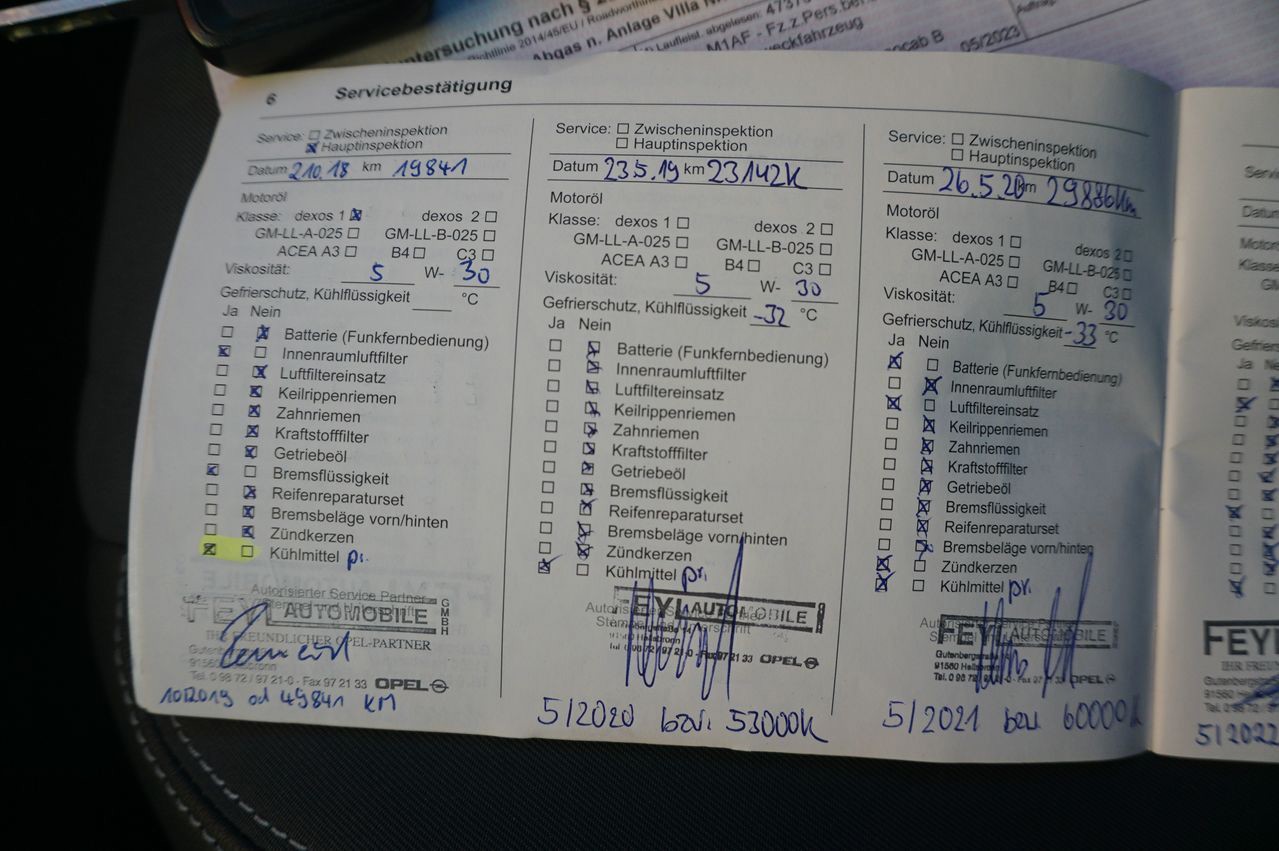 ntersuchung nach §
Richtlinie 2014/45/EU / Roadworthin
Abgas n. Anlage VIIIa N
Laufleist. abgelesen: 4737
M1AF - Fz.z.Pers.be
eckfahrzeug
ocab B
05/2023
6 Servicebestätigung
Service: ☐ Zwischeninspektion
☒ Hauptinspektion
Datum 2.10.18 km 19841
Motoröl
Klasse: dexos 1 ☒ dexos 2 ☐
GM-LL-A-025 ☐ GM-LL-B-025 ☐
ACEA A3 ☐ B4 ☐ C3 ☐
Viskosität: 5 W- 30
Gefrierschutz, Kühlflüssigkeit °C
Ja Nein
☐ ☒ Batterie (Funkfernbedienung)
☒ ☐ Innenraumluftfilter
☐ ☒ Luftfiltereinsatz
☐ ☒ Keilrippenriemen
☐ ☒ Zahnriemen
☐ ☒ Kraftstofffilter
☐ ☒ Getriebeöl
☒ ☐ Bremsflüssigkeit
☐ ☒ Reifenreparaturset
☐ ☒ Bremsbeläge vorn/hinten
☐ ☒ Zündkerzen
☒ ☐ Kühlmittel pr.
Autorisierter Service Partner
FEYL AUTOMOBILE GMBH
IHR FREUNDLICHER OPEL-PARTNER
Gutenbergstraße
91560 Heilsbronn
Tel. 0 98 72 / 97 21-0 - Fax 97 21 33 OPEL
10/2019 od 49841 KM
Service: ☐ Zwischeninspektion
☐ Hauptinspektion
Datum 23.5.19 km 23142K
Motoröl
Klasse: dexos 1 ☐ dexos 2 ☐
GM-LL-A-025 ☐ GM-LL-B-025 ☐
ACEA A3 ☐ B4 ☐ C3 ☐
Viskosität: 5 W- 30
Gefrierschutz, Kühlflüssigkeit -32 °C
Ja Nein
☐ ☒ Batterie (Funkfernbedienung)
☐ ☒ Innenraumluftfilter
☐ ☒ Luftfiltereinsatz
☐ ☒ Keilrippenriemen
☐ ☒ Zahnriemen
☐ ☒ Kraftstofffilter
☐ ☒ Getriebeöl
☐ ☒ Bremsflüssigkeit
☐ ☒ Reifenreparaturset
☐ ☒ Bremsbeläge vorn/hinten
☐ ☒ Zündkerzen
☒ ☐ Kühlmittel pr.
FEYL AUTOMOBILE
91560 Heilsbronn
Tel 0 98 72 / 97 21-0 - Fax 97 21 33 OPEL
5/2020 bzw. 53000K
Service: ☐ Zwischeninspektion
☐ Hauptinspektion
Datum 26.5.20 km 29886Km
Motoröl
Klasse: dexos 1 ☐ dexos 2 ☐
GM-LL-A-025 ☐ GM-LL-B-025 ☐
ACEA A3 ☐ B4 ☐ C3 ☐
Viskosität: 5 W- 30
Gefrierschutz, Kühlflüssigkeit -33 °C
Ja Nein
☒ ☐ Batterie (Funkfernbedienung)
☐ ☒ Innenraumluftfilter
☒ ☐ Luftfiltereinsatz
☐ ☒ Keilrippenriemen
☐ ☒ Zahnriemen
☐ ☒ Kraftstofffilter
☐ ☒ Getriebeöl
☐ ☒ Bremsflüssigkeit
☐ ☒ Reifenreparaturset
☐ ☒ Bremsbeläge vorn/hinten
☒ ☐ Zündkerzen
☒ ☐ Kühlmittel pr.
FEYL AUTOMOBILE
Gutenbergstraße 14
91560 Heilsbronn
Tel. 0 98 72 / 97 21-0 - Fax 97 21 33 OPEL
5/2021 bzw 60000K
Servic
Datum
Motorö
Klasse
GM
Viskos
Gefrier
Ja Ne
FEYL
IHR FREUN
Gutenberg
91560 Heil
Tel. 0 98 7
5/2022